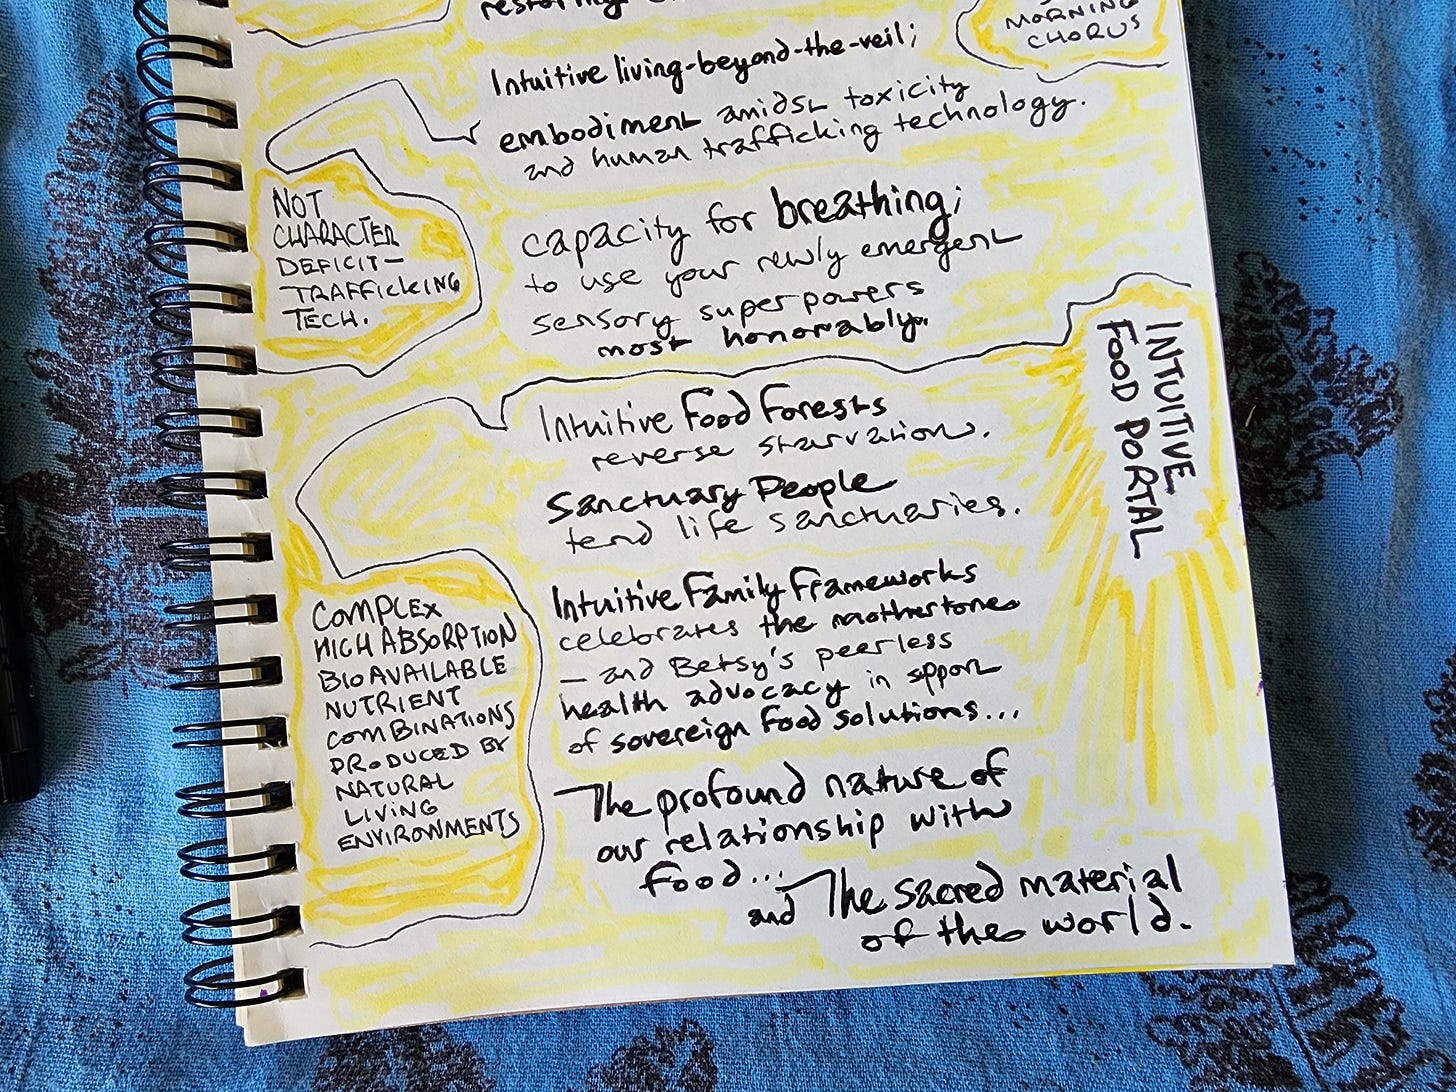 restoring
MORNING
CHORUS
Intuitive living-beyond-the-veil;
embodiment amidst toxicity
and human trafficking technology.
NOT
CHARACTER
DEFICIT—
TRAFFICKING
TECH.
capacity for breathing;
to use your newly emergent
sensory superpowers
most honorably.
INTUITIVE
FOOD PORTAL
Intuitive Food Forests
reverse starvation.
Sanctuary People
tend life sanctuaries.
COMPLEX
HIGH ABSORPTION
BIOAVAILABLE
NUTRIENT
COMBINATIONS
PRODUCED BY
NATURAL
LIVING
ENVIRONMENTS
Intuitive Family Frameworks
celebrates the mothertones
— and Betsy's peerless
health advocacy in spport
of sovereign food solutions...
The profound nature of
our relationship with
food...
and The sacred material
of the world.